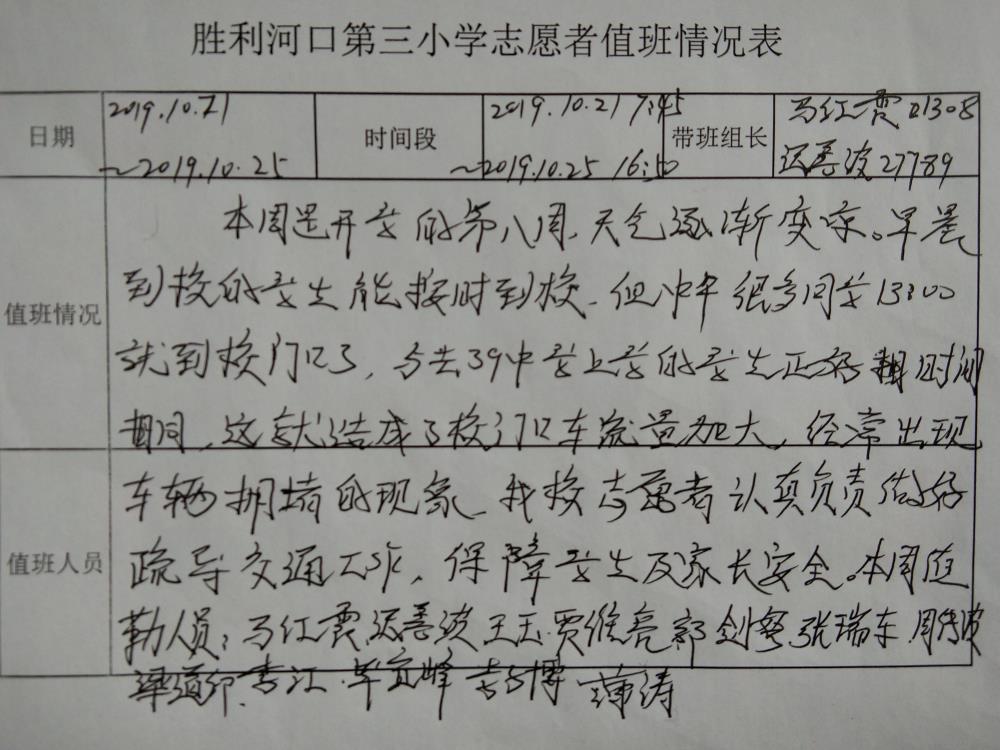 胜利河口第三小学志愿者值班情况表
日期 2019.10.21 ~2019.10.25 时间段 2019.10.21 7:45 ~2019.10.25 16:50 带班组长 马红霞 迟善波 27789
值班情况
本周是开学的第八周,天气逐渐变凉。早晨
到校的学生能按时到校.但中午很多同学13:00
就到校门口了,与去39中学上学的学生正好时间
相同,这就造成了校门口车流量加大,经常出现
值班人员
车辆拥堵的现象.我校志愿者认真负责做好
疏导交通工作,保障学生及家长安全。本周值
勤人员:马红霞 迟善波 王玉 贾维亮 郭剑 张瑞东 周
梁道 李江 毕立峰 李 蒲涛